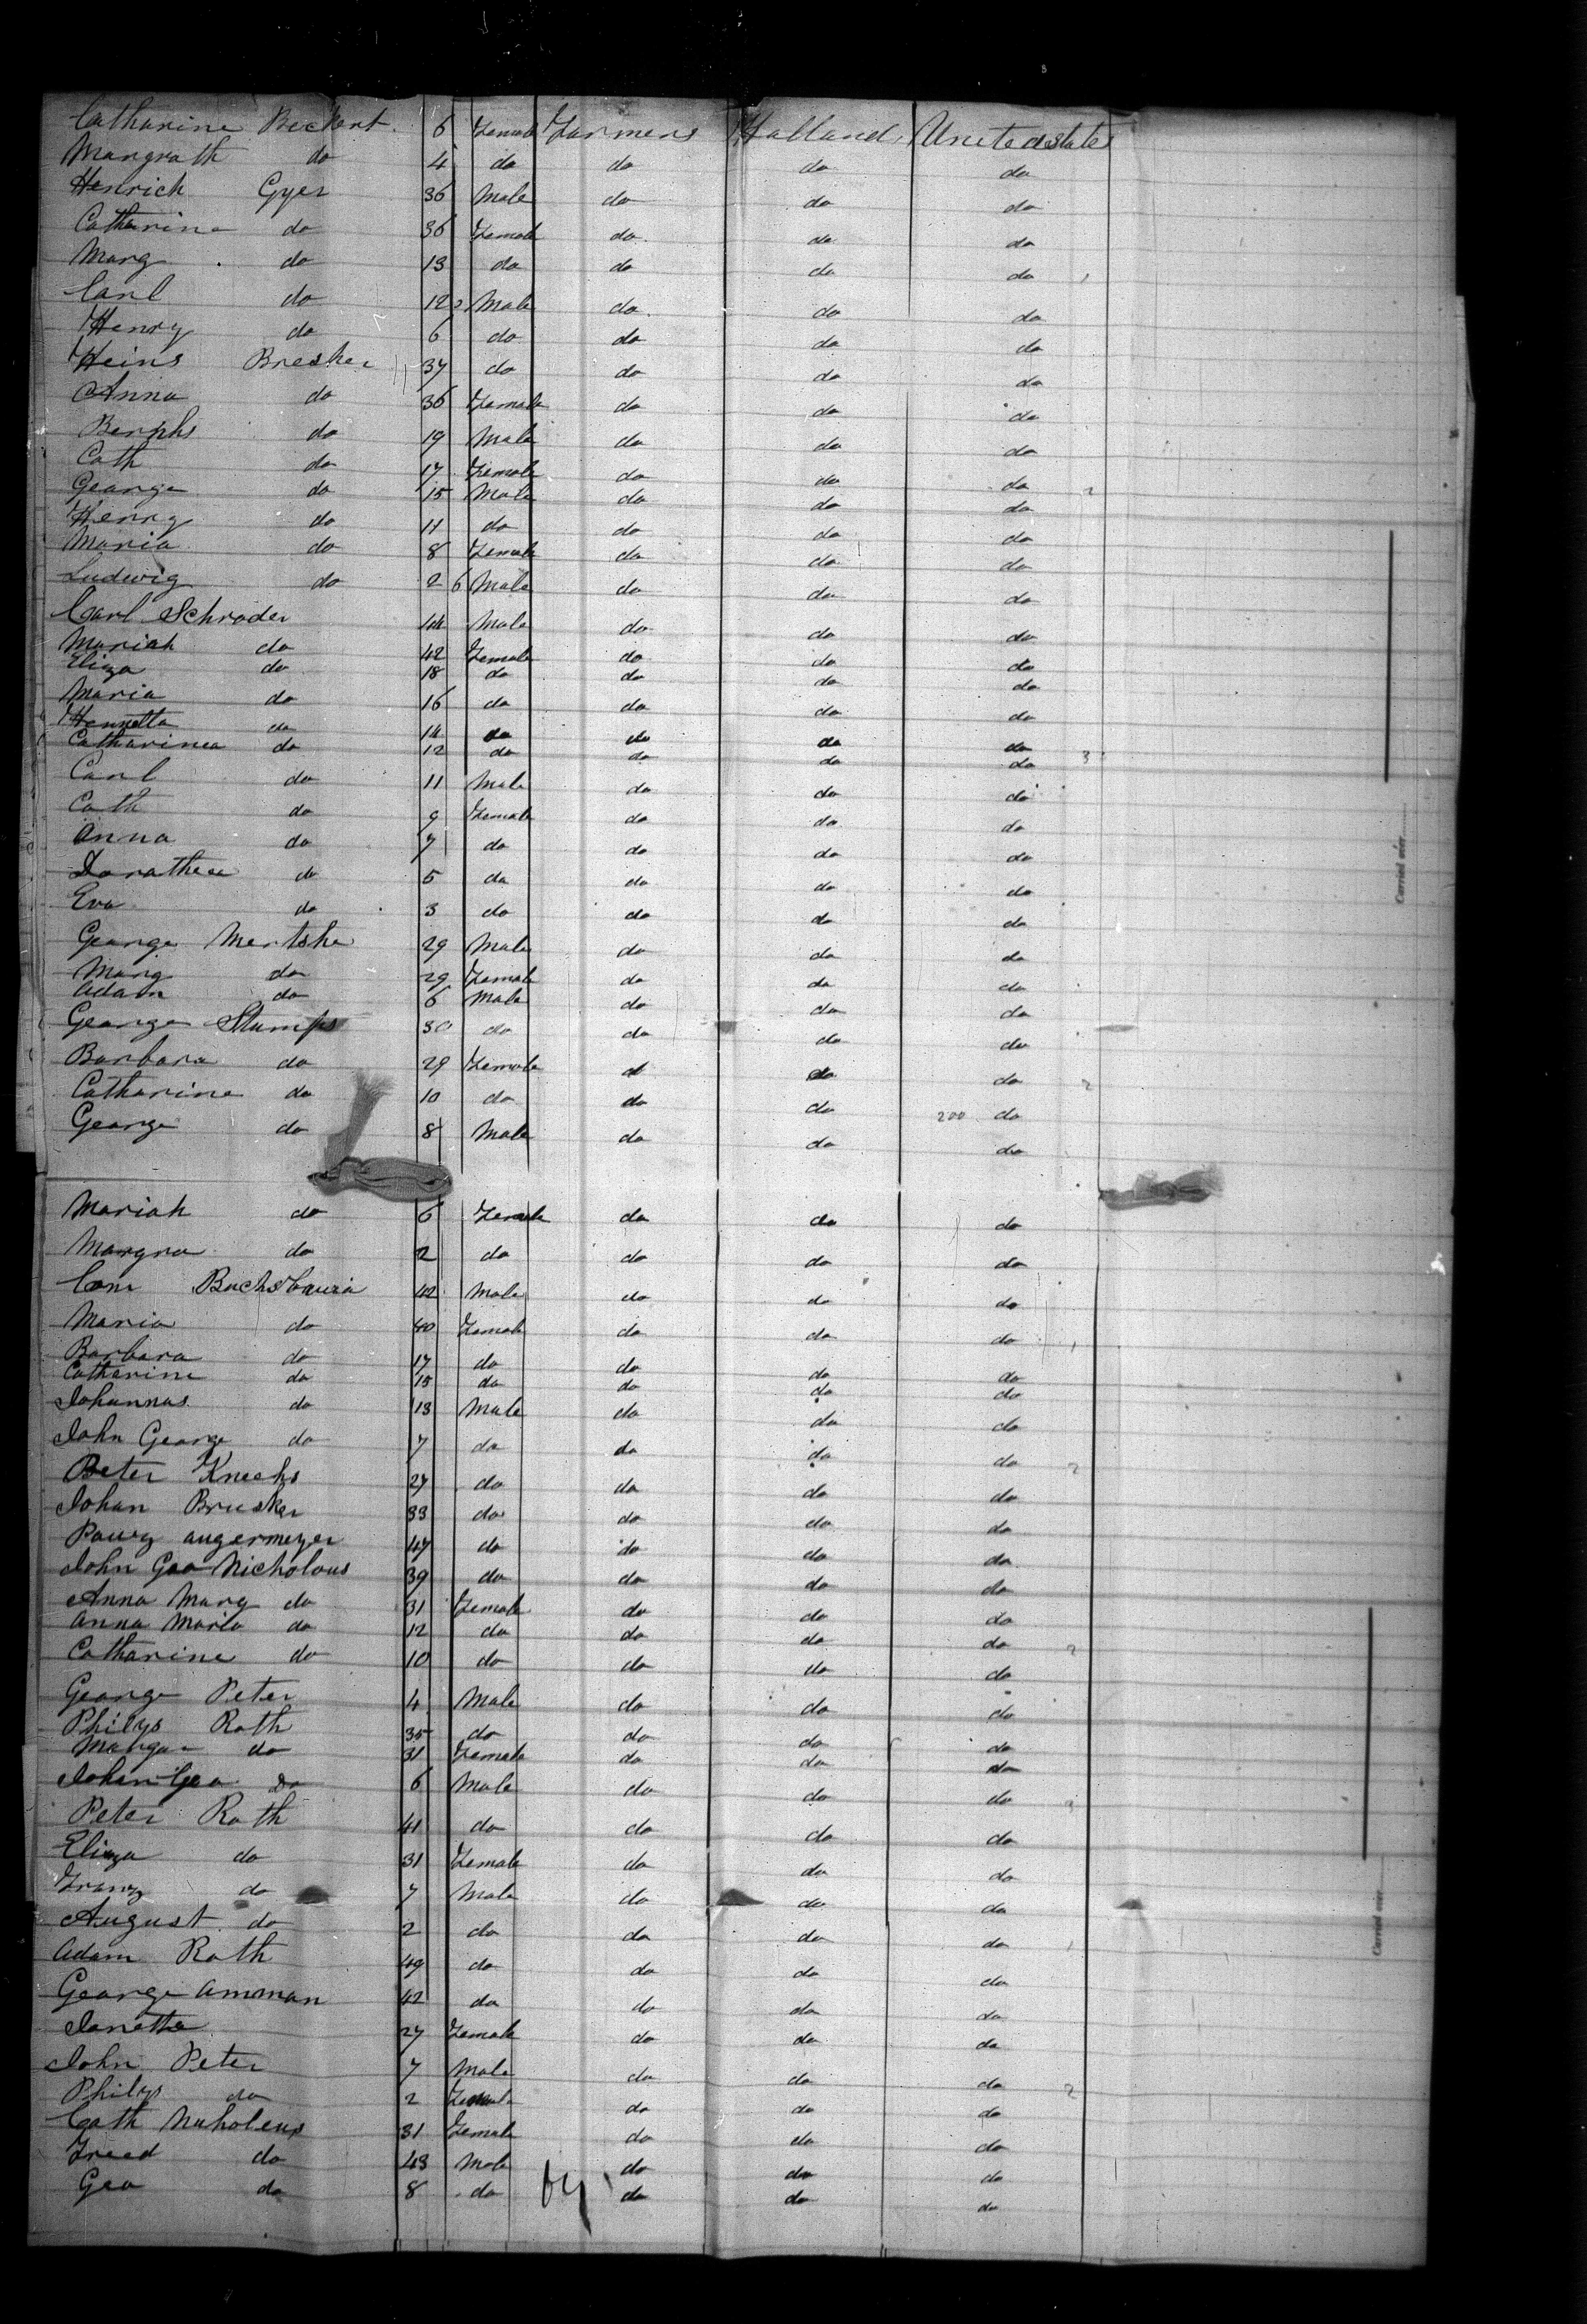 Catharine Beckert 6 Female Farmers Holland United States
Mangrath do 4 do do do do
Henrich Gyer 36 Male do do do
Catharine do 36 Female do do do
Marg do 13 do do do do
Carl do 12 Male do do do
Henry do 6 do do do do
Heins Bresher 37 do do do do
Anna do 36 Female do do do
do 19 Male do do do
Cath do 17 Female do do do
George do 15 Male do do do
Henry do 11 do do do do
Maria do 8 Female do do do
Ludwig do 2 6 Male do do do
Carl Schroder 44 Male do do do
Mariah do 42 Female do do do
Eliza do 18 do do do do
Maria do 16 do do do do
Hennetta do 14 do do do do
Catharinea do 12 do do do do 3
Carl do 11 Male do do do
Cath do 9 Female do do do
Anna do 7 do do do do
Dorathea do 5 do do do do
Eva do 3 do do do do
George Mertshe 29 Male do do do
Marg do 29 Female do do do
Adam do 6 Male do do do
George Stumps 30 do do do do
Barbara do 29 Female do do do
Catharine do 10 do do do 200 do
George do 8 Male do do do
Mariah do 6 Female do do do
Margna do 2 do do do do
42 Male do do do
Maria do 40 Female do do do
Barbara do 17 do do do do
Catharine do 15 do do do do
Johannas do 13 Male do do do
John George do 7 do do do do
Peter Knechs 27 do do do do
Johan Brusker 33 do do do do
angermeyer 47 do do do do
John Geo Nicholaus 39 do do do do
Anna Marg do 31 Female do do do
Anna Maria do 12 do do do do
Catharine do 10 do do do do
George Peter 4 Male do do do
Philys Roth 35 do do do do
Margar do 31 Female do do do
Johan Geo Do 6 Male do do do
Peter Roth 41 do do do do
Eliza do 31 Female do do do
Franz do 7 Male do do do
August do 2 do do do do
Adam Roth 49 do do do do
George Amman 42 do do do do
Janetta 27 Female do do do
John Peter 7 Male do do do
Philys do 2 Female do do do
Cath Nuholeus 31 Female do do do
Freed do 43 Male do do do
Geo do 8 do do do do
Carried over
Carried over